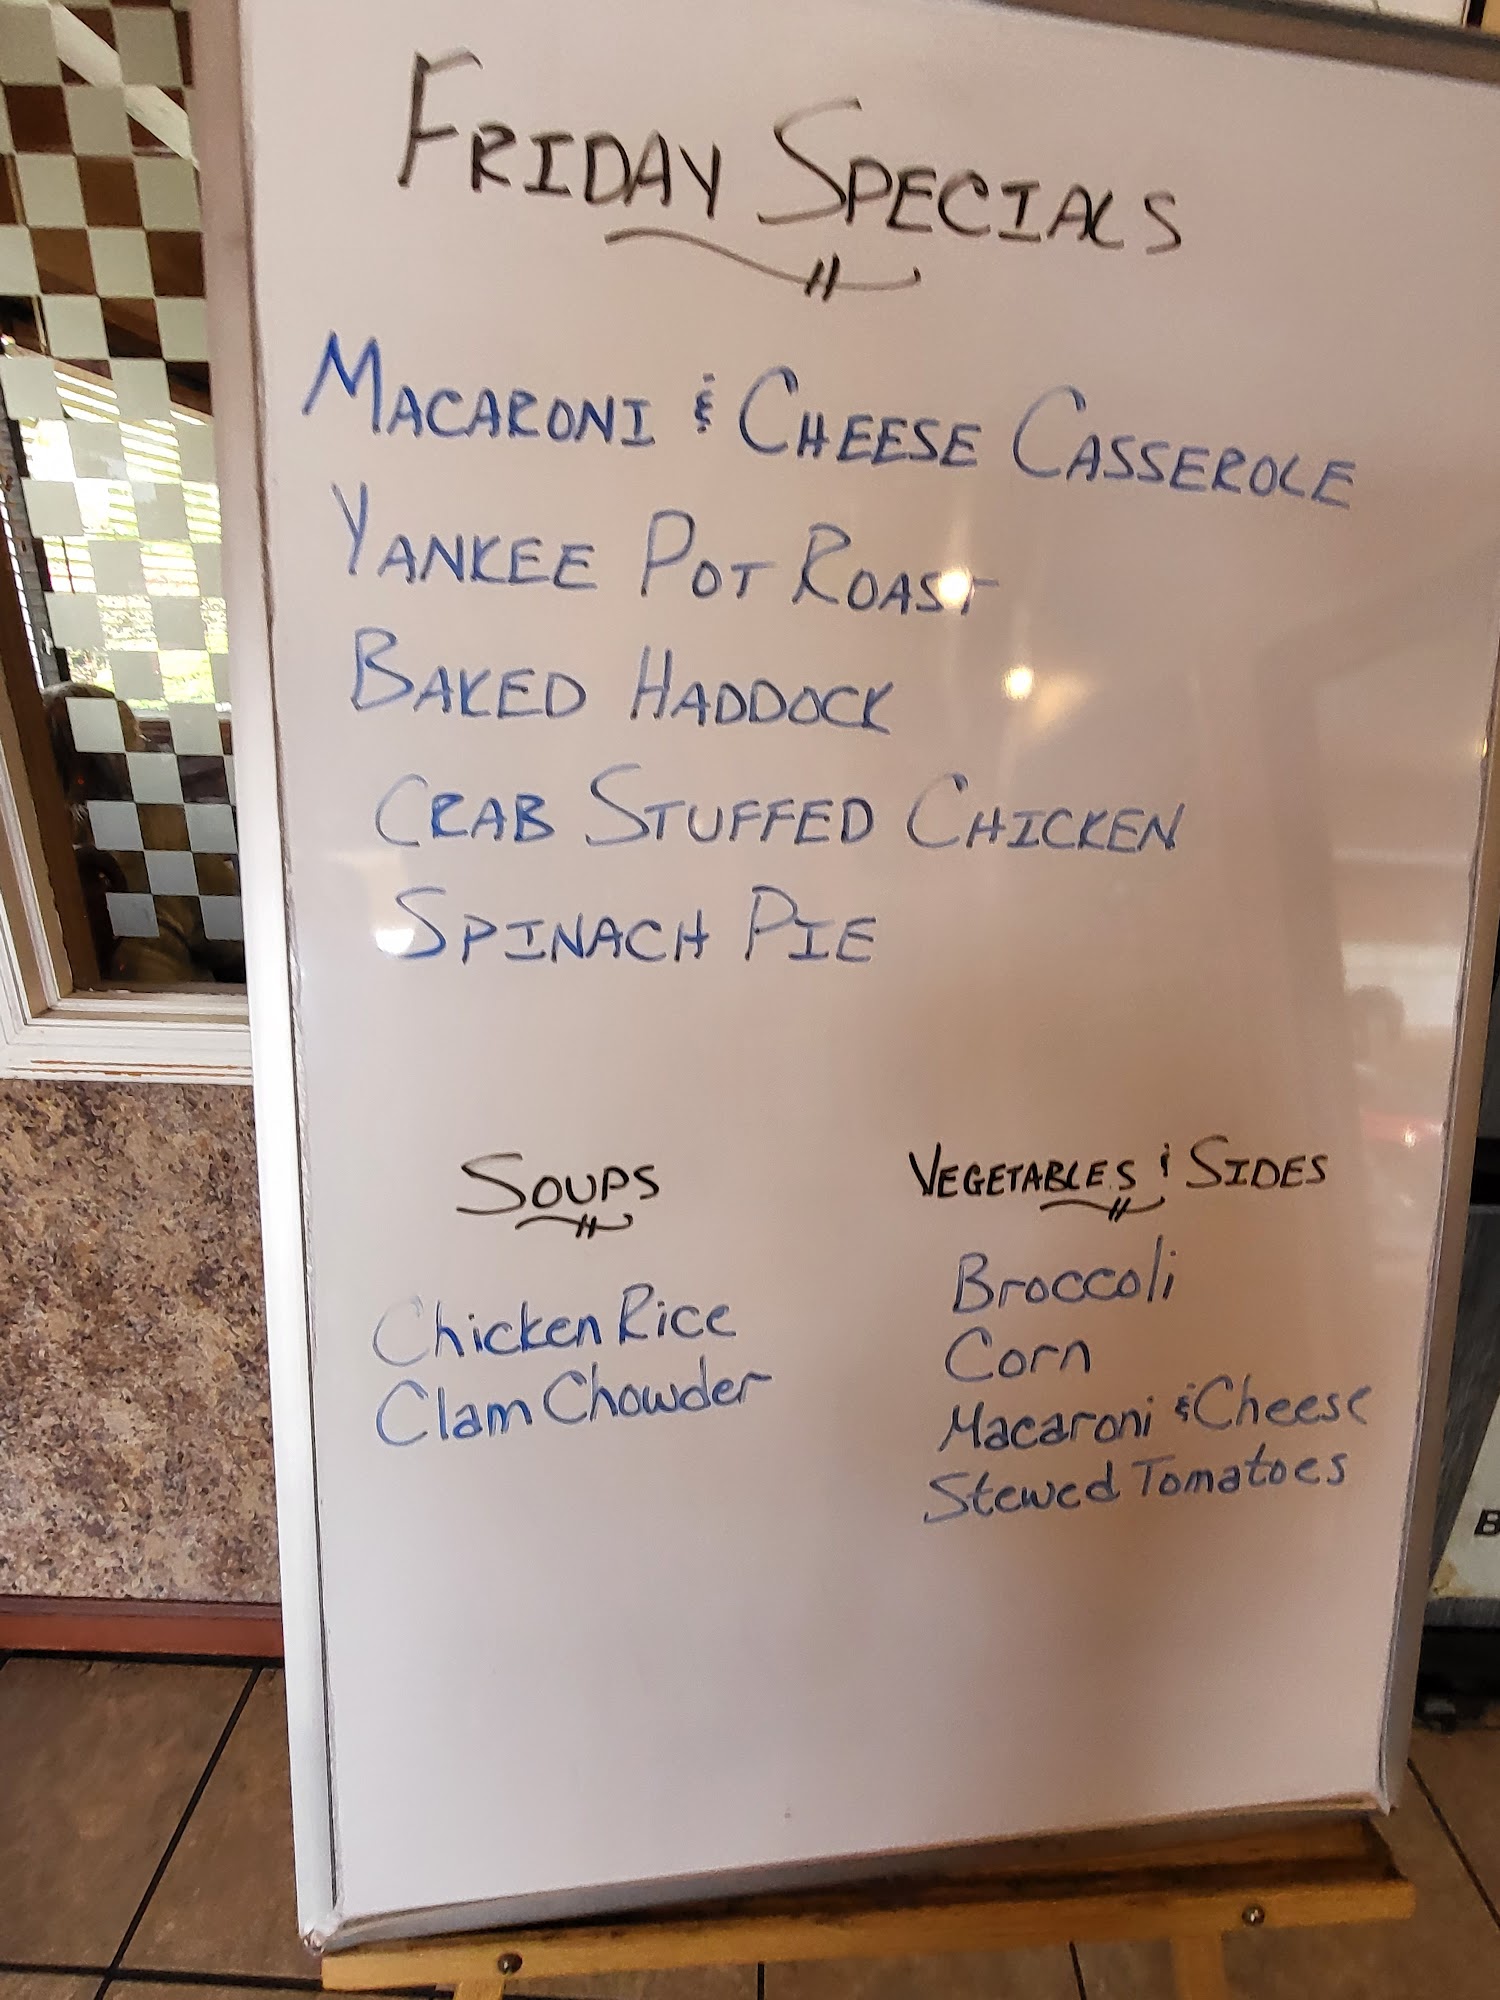 FRIDAY SPECIALS
MACARONI & CHEESE CASSEROLE
YANKEE POT ROAST
BAKED HADDOCK
CRAB STUFFED CHICKEN
SPINACH PIE
SOUPS
Chicken Rice
Clam Chowder
VEGETABLES & SIDES
Broccoli
Corn
Macaroni & Cheese
Stewed Tomatoes